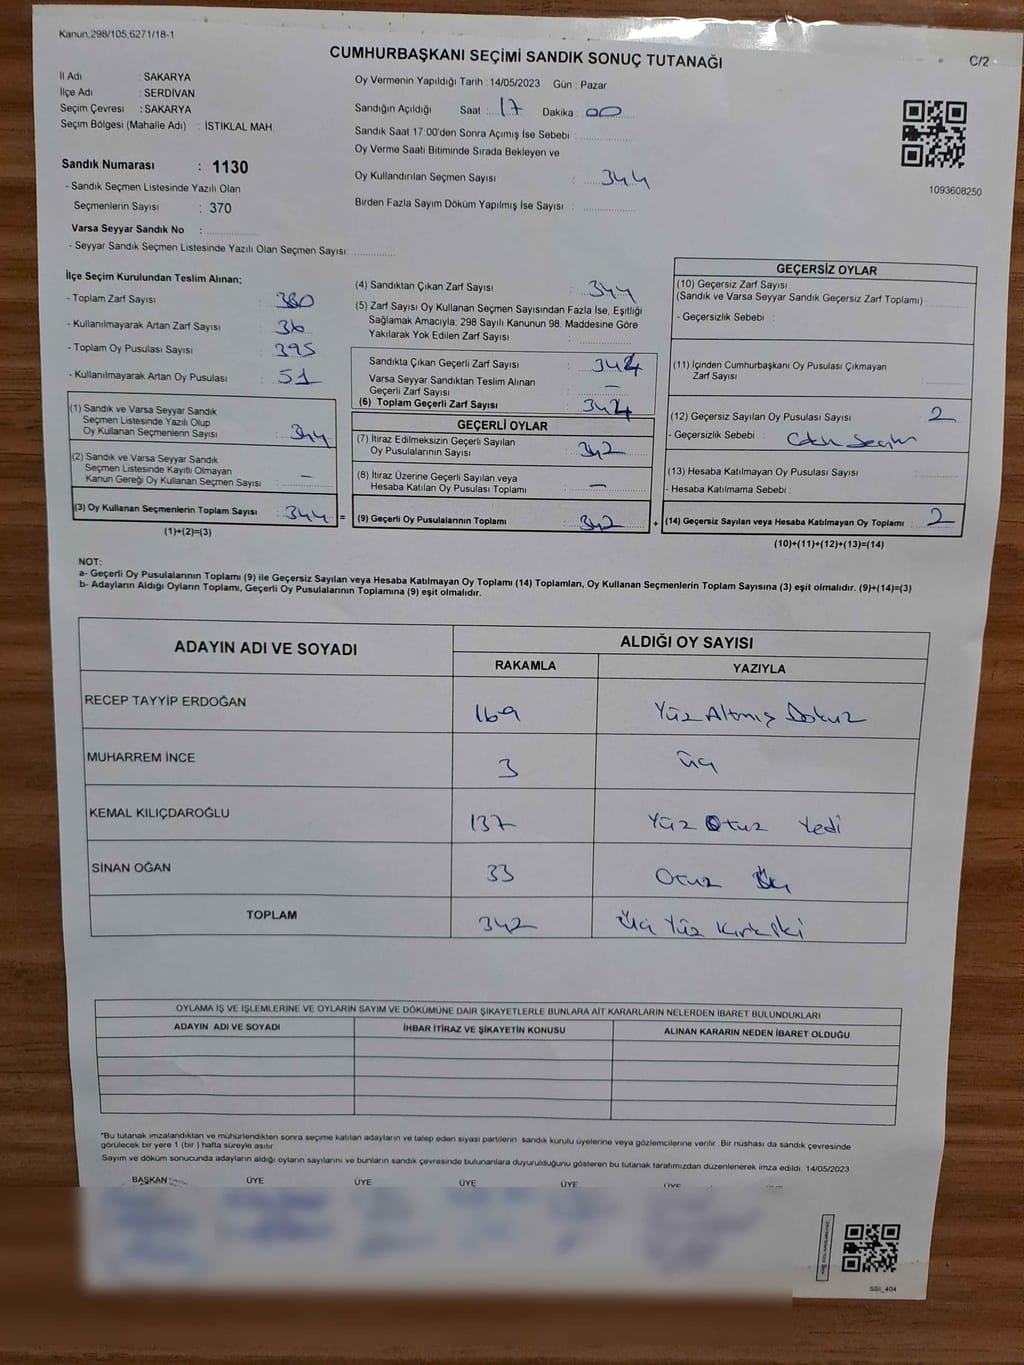 Kanun.298/105,6271/18-1
C/2
CUMHURBAŞKANI SEÇİMİ SANDIK SONUÇ TUTANAĞI
İl Adı : SAKARYA
İlçe Adı : SERDİVAN
Seçim Çevresi : SAKARYA
Seçim Bölgesi (Mahalle Adı) : İSTİKLAL MAH.
Sandık Numarası : 1130
- Sandık Seçmen Listesinde Yazılı Olan
Seçmenlerin Sayısı : 370
Varsa Seyyar Sandık No :
- Seyyar Sandık Seçmen Listesinde Yazılı Olan Seçmen Sayısı:
Oy Vermenin Yapıldığı Tarih : 14/05/2023 Gün : Pazar
Sandığın Açıldığı Saat : 17 Dakika : 00
Sandık Saat 17:00'den Sonra Açımış İse Sebebi :
Oy Verme Saati Bitiminde Sırada Bekleyen ve
Oy Kullandırılan Seçmen Sayısı : 344
Birden Fazla Sayım Döküm Yapılmış İse Sayısı :
1093608250
İlçe Seçim Kurulundan Teslim Alınan;
- Toplam Zarf Sayısı : 380
- Kullanılmayarak Artan Zarf Sayısı : 36
- Toplam Oy Pusulası Sayısı : 395
- Kullanılmayarak Artan Oy Pusulası : 51
(1) Sandık ve Varsa Seyyar Sandık
Seçmen Listesinde Yazılı Olup
Oy Kullanan Seçmenlerin Sayısı : 344
(2) Sandık ve Varsa Seyyar Sandık
Seçmen Listesinde Kayıtlı Olmayan
Kanun Gereği Oy Kullanan Seçmen Sayısı : —
(3) Oy Kullanan Seçmenlerin Toplam Sayısı : 344 =
(1)+(2)=(3)
(4) Sandıktan Çıkan Zarf Sayısı : 344
(5) Zarf Sayısı Oy Kullanan Seçmen Sayısından Fazla İse, Eşitliği
Sağlamak Amacıyla; 298 Sayılı Kanunun 98. Maddesine Göre
Yakılarak Yok Edilen Zarf Sayısı :
Sandıkta Çıkan Geçerli Zarf Sayısı : 344
Varsa Seyyar Sandıktan Teslim Alınan
Geçerli Zarf Sayısı : —
(6) Toplam Geçerli Zarf Sayısı : 344
GEÇERLİ OYLAR
(7) İtiraz Edilmeksizin Geçerli Sayılan
Oy Pusulalarının Sayısı : 342
(8) İtiraz Üzerine Geçerli Sayılan veya
Hesaba Katılan Oy Pusulası Toplamı : —
(9) Geçerli Oy Pusulalarının Toplamı : 342 +
GEÇERSİZ OYLAR
(10) Geçersiz Zarf Sayısı
(Sandık ve Varsa Seyyar Sandık Geçersiz Zarf Toplamı) :
- Geçersizlik Sebebi :
(11) İçinden Cumhurbaşkanı Oy Pusulası Çıkmayan
Zarf Sayısı :
(12) Geçersiz Sayılan Oy Pusulası Sayısı : 2
- Geçersizlik Sebebi :
(13) Hesaba Katılmayan Oy Pusulası Sayısı :
- Hesaba Katılmama Sebebi :
(14) Geçersiz Sayılan veya Hesaba Katılmayan Oy Toplamı : 2
(10)+(11)+(12)+(13)=(14)
NOT:
a- Geçerli Oy Pusulalarının Toplamı (9) ile Geçersiz Sayılan veya Hesaba Katılmayan Oy Toplamı (14) Toplamları, Oy Kullanan Seçmenlerin Toplam Sayısına (3) eşit olmalıdır. (9)+(14)=(3)
b- Adayların Aldığı Oyların Toplamı, Geçerli Oy Pusulalarının Toplamına (9) eşit olmalıdır.
ADAYIN ADI VE SOYADI
ALDIĞI OY SAYISI
RAKAMLA YAZIYLA
RECEP TAYYİP ERDOĞAN 169 Yüz Altmış Dokuz
MUHARREM İNCE 3 üç
KEMAL KILIÇDAROĞLU 137 Yüz Otuz Yedi
SİNAN OĞAN 33 Otuz Üç
TOPLAM 342 Üç Yüz Kırk İki
OYLAMA İŞ VE İŞLEMLERİNE VE OYLARIN SAYIM VE DÖKÜMÜNE DAİR ŞİKAYETLERLE BUNLARA AİT KARARLARIN NELERDEN İBARET BULUNDUKLARI
ADAYIN ADI VE SOYADI İHBAR İTİRAZ VE ŞİKAYETİN KONUSU ALINAN KARARIN NEDEN İBARET OLDUĞU
*Bu tutanak imzalandıktan ve mühürlendikten sonra seçime katılan adayların ve talep eden siyasi partilerin sandık kurulu üyelerine veya gözlemcilerine verilir. Bir nüshası da sandık çevresinde
görülecek bir yere 1 (bir ) hafta süreyle asılır.
Sayım ve döküm sonucunda adayların aldığı oyların sayılarını ve bunların sandık çevresinde bulunanlara duyurulduğunu gösteren bu tutanak tarafımızdan düzenlenerek imza edildi. 14/05/2023
BAŞKAN ÜYE ÜYE ÜYE ÜYE ÜYE
SSI_404